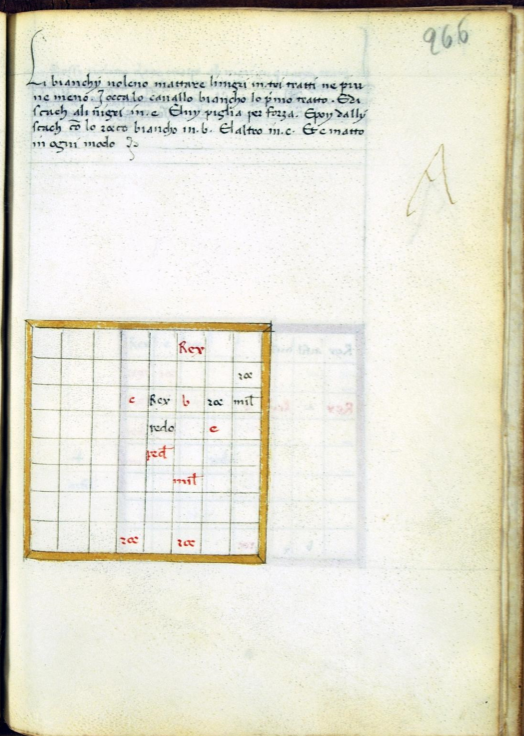 966
Li bianchi voleno mattare li nigri in toi tratti ne piu
ne meno. Jocca lo cavallo biancho lo pmo tratto. E di
scach ali nigri in. e. Elui piglia per forza. E poy dalli
scach cō lo roccο biancho in. b. El altro in. c. Et e matto
in ogni modo
A
Rex
roc
c Rex b roc mil
pedo e
ped
mil
roc roc